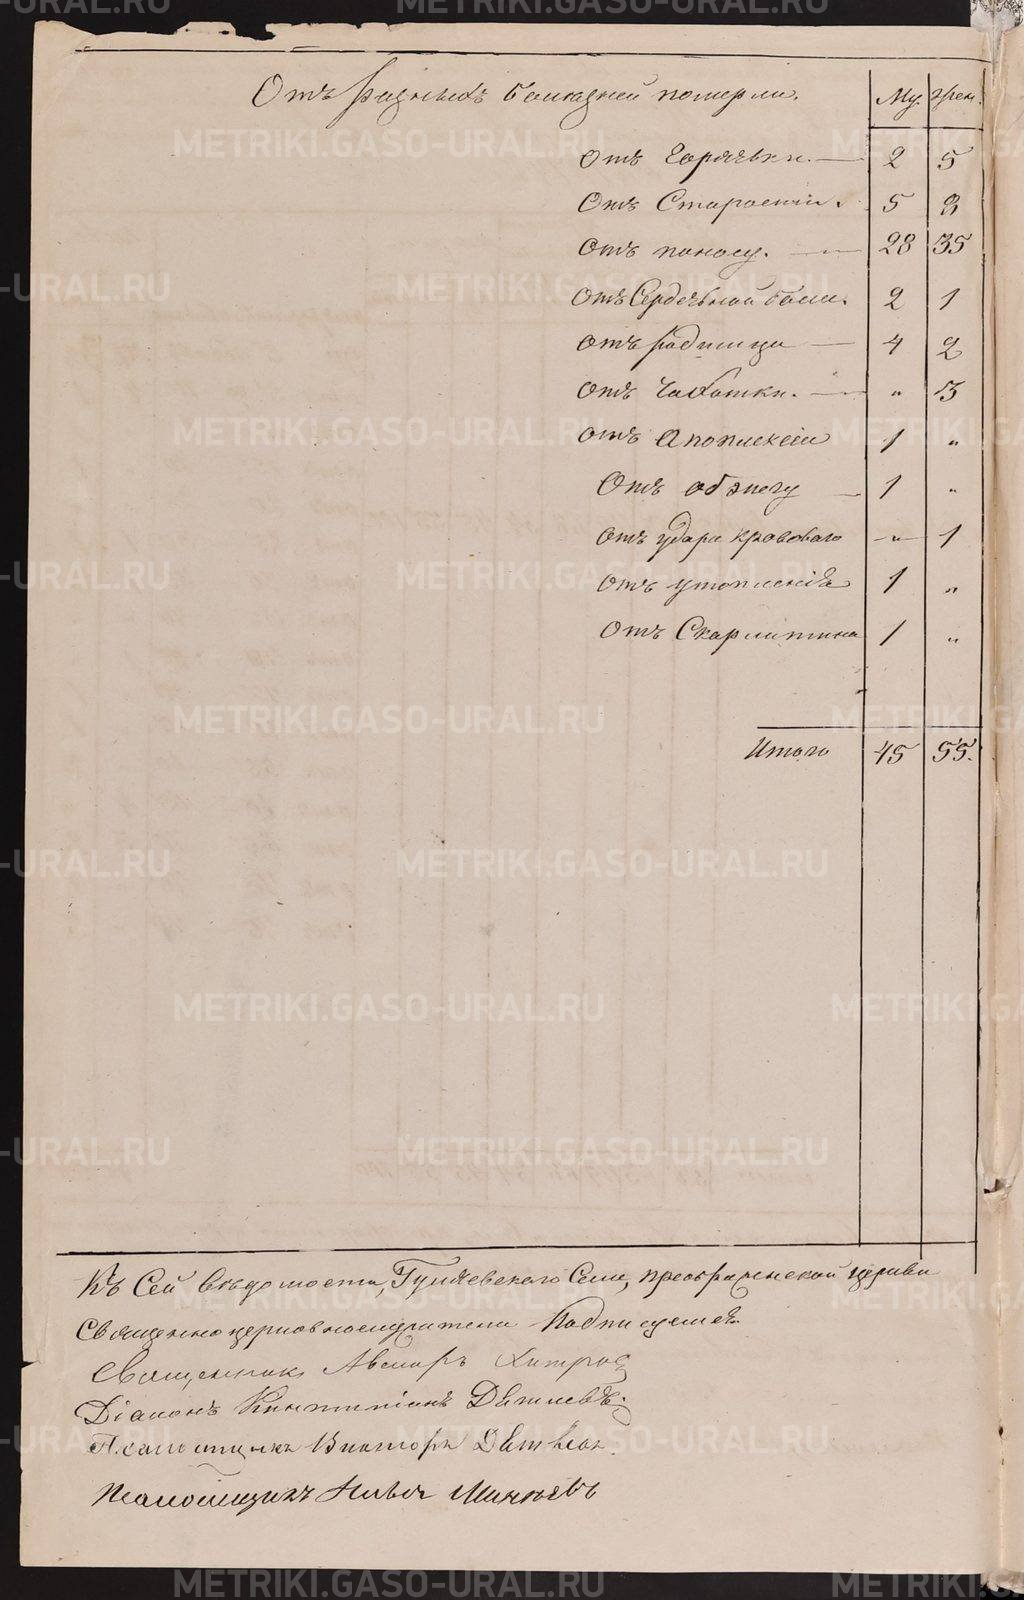 Отъ разныхъ болезней померли. Му. Жен.
Отъ Горячьки. — 2 5
Отъ Старости. 5 8
Отъ поносу. — 28 35
Отъ Сердечьной боли. 2 1
Отъ родимца — 4 2
Отъ Чахотки. — „ 3
Отъ Апоплексии 1 „
Отъ обжегу — 1 „
Отъ удара кроваваго — „ — 1
Отъ утопленія 1 „
Отъ Скарлатина 1 „
Итого 45 55.
Къ Сей Ведомости, Села, преображенской церкви
Священноцерковнослужители Подписуемся
Священник
Діаконъ
Псаломщикъ Викторъ
Псаломщикъ
METRIKI.GASO-URAL.RU